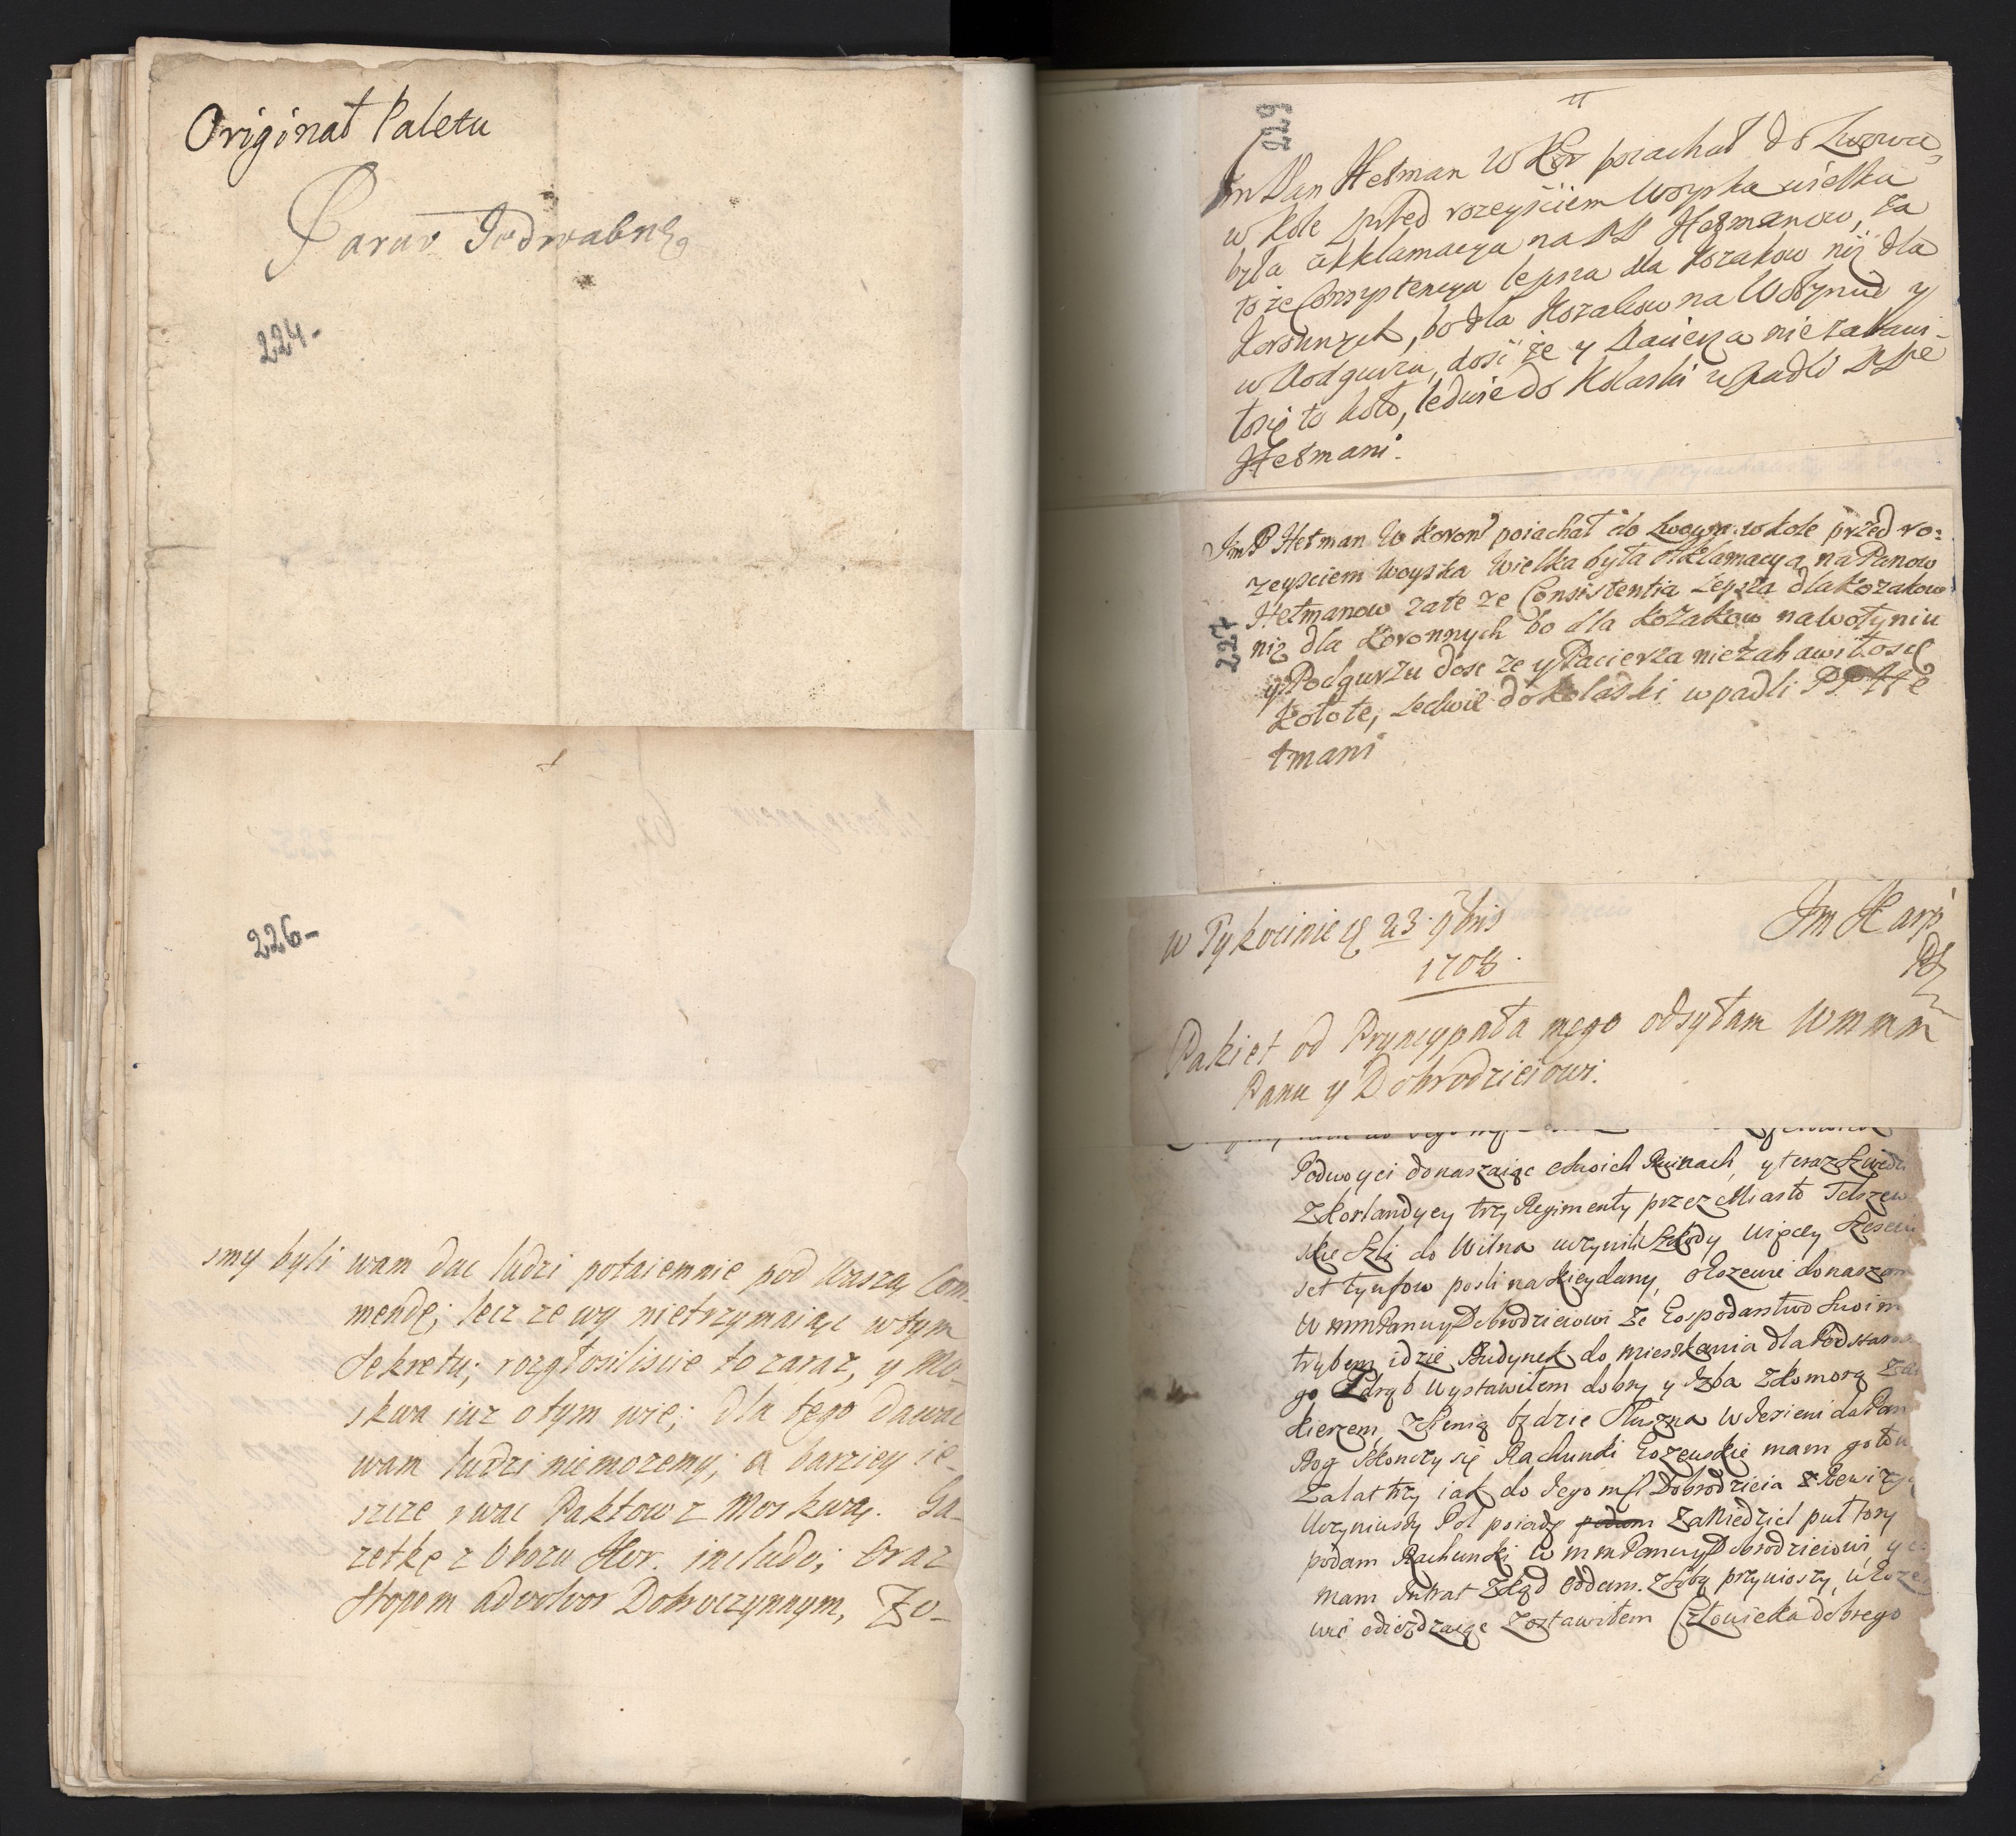 Originał Paletu
Parus Jedwabng
224-
226-
smy byli wam dac ludzi potaiemnie pod Waszą Com-
mendę; lecz ze wy nietrzymaiąc wtym
Sekretu; rozgłosiliscie to zaraz, y Mo-
skwa iuz otym wie; dla tego dawac
wam ludzi niemozemy; a barziey ie-
szcze rwac Paktow z Moskwą. Ga-
zetkę z Obozu Kor. includo; Oraz
Stopom advolvor Dobroczynnym, Zo-
229
Jm Pan Hetman W Kor poiachał do Lwowa,
w Kole przed rozeysciem Woyska wielka
była akklamacya na PP Hetmanow, za
to ze Consystencya lepsza dla Kozakow niż dla
Koronnych, bo dla Kozakow na Wołyniu y
w Podgurzu, dosi że y Pacierza nie zabawi-
łosię to koło, ledwie do Kolaski wpadli PPe
Hetmani.
227
Jm P Hetman W Koron poiachał do Lwowa: w kole przed ro:
zeysciem Woyska Wielka była akklamacya na Panow
Hetmanow zate ze Consistentia Lepsza dla Kozakow
niz dla Koronnych bo dla Kozakow na Wołyniu
y Podgurzu dosc ze y Pacierza niezabawiłosię
kołote, Ledwie do Kolaski wpadli PP He
tmani
w Tykocinie 23 9bris
1708.
Jm Karp
Pakiet od Pryncypała mego odsyłam Wmmm
Panu y Dobrodzieiowi.
Podwoyci donaszaiąc o Swoich Ruinach, y teraz Szwedzi
z Korlandyey trzy Regimenty przez Miasto Telszew
skie Szli do Wilna uczynili Szkody więcey Szesciu
set tynfow posli na Kieydany, donaszam
W mm Panu y Dobrodzieiowi Ze Gospodarstwo Swoim
trybem idzie Budynek do mieszkania dla Podstaros
go wystawiłem dobry y Izba z Komorą
kierzem, z Sienią będzie Słuszna w Jesieni da Pan
Bog Skonczy się Rachunki mam gotow
Zalat trzy iak do Jego mP Dobrodzieia z Rewizy
Uczyniwszy Pol poiadę Za Niedziel puł tory
podam Rachunki W mm Panu y Dobrodzieiowi y co
mam Intrat Zkąd oddam. z Sobą przyniosszy,
odiezdzaiąc zostawiłem Człowieka dobrego